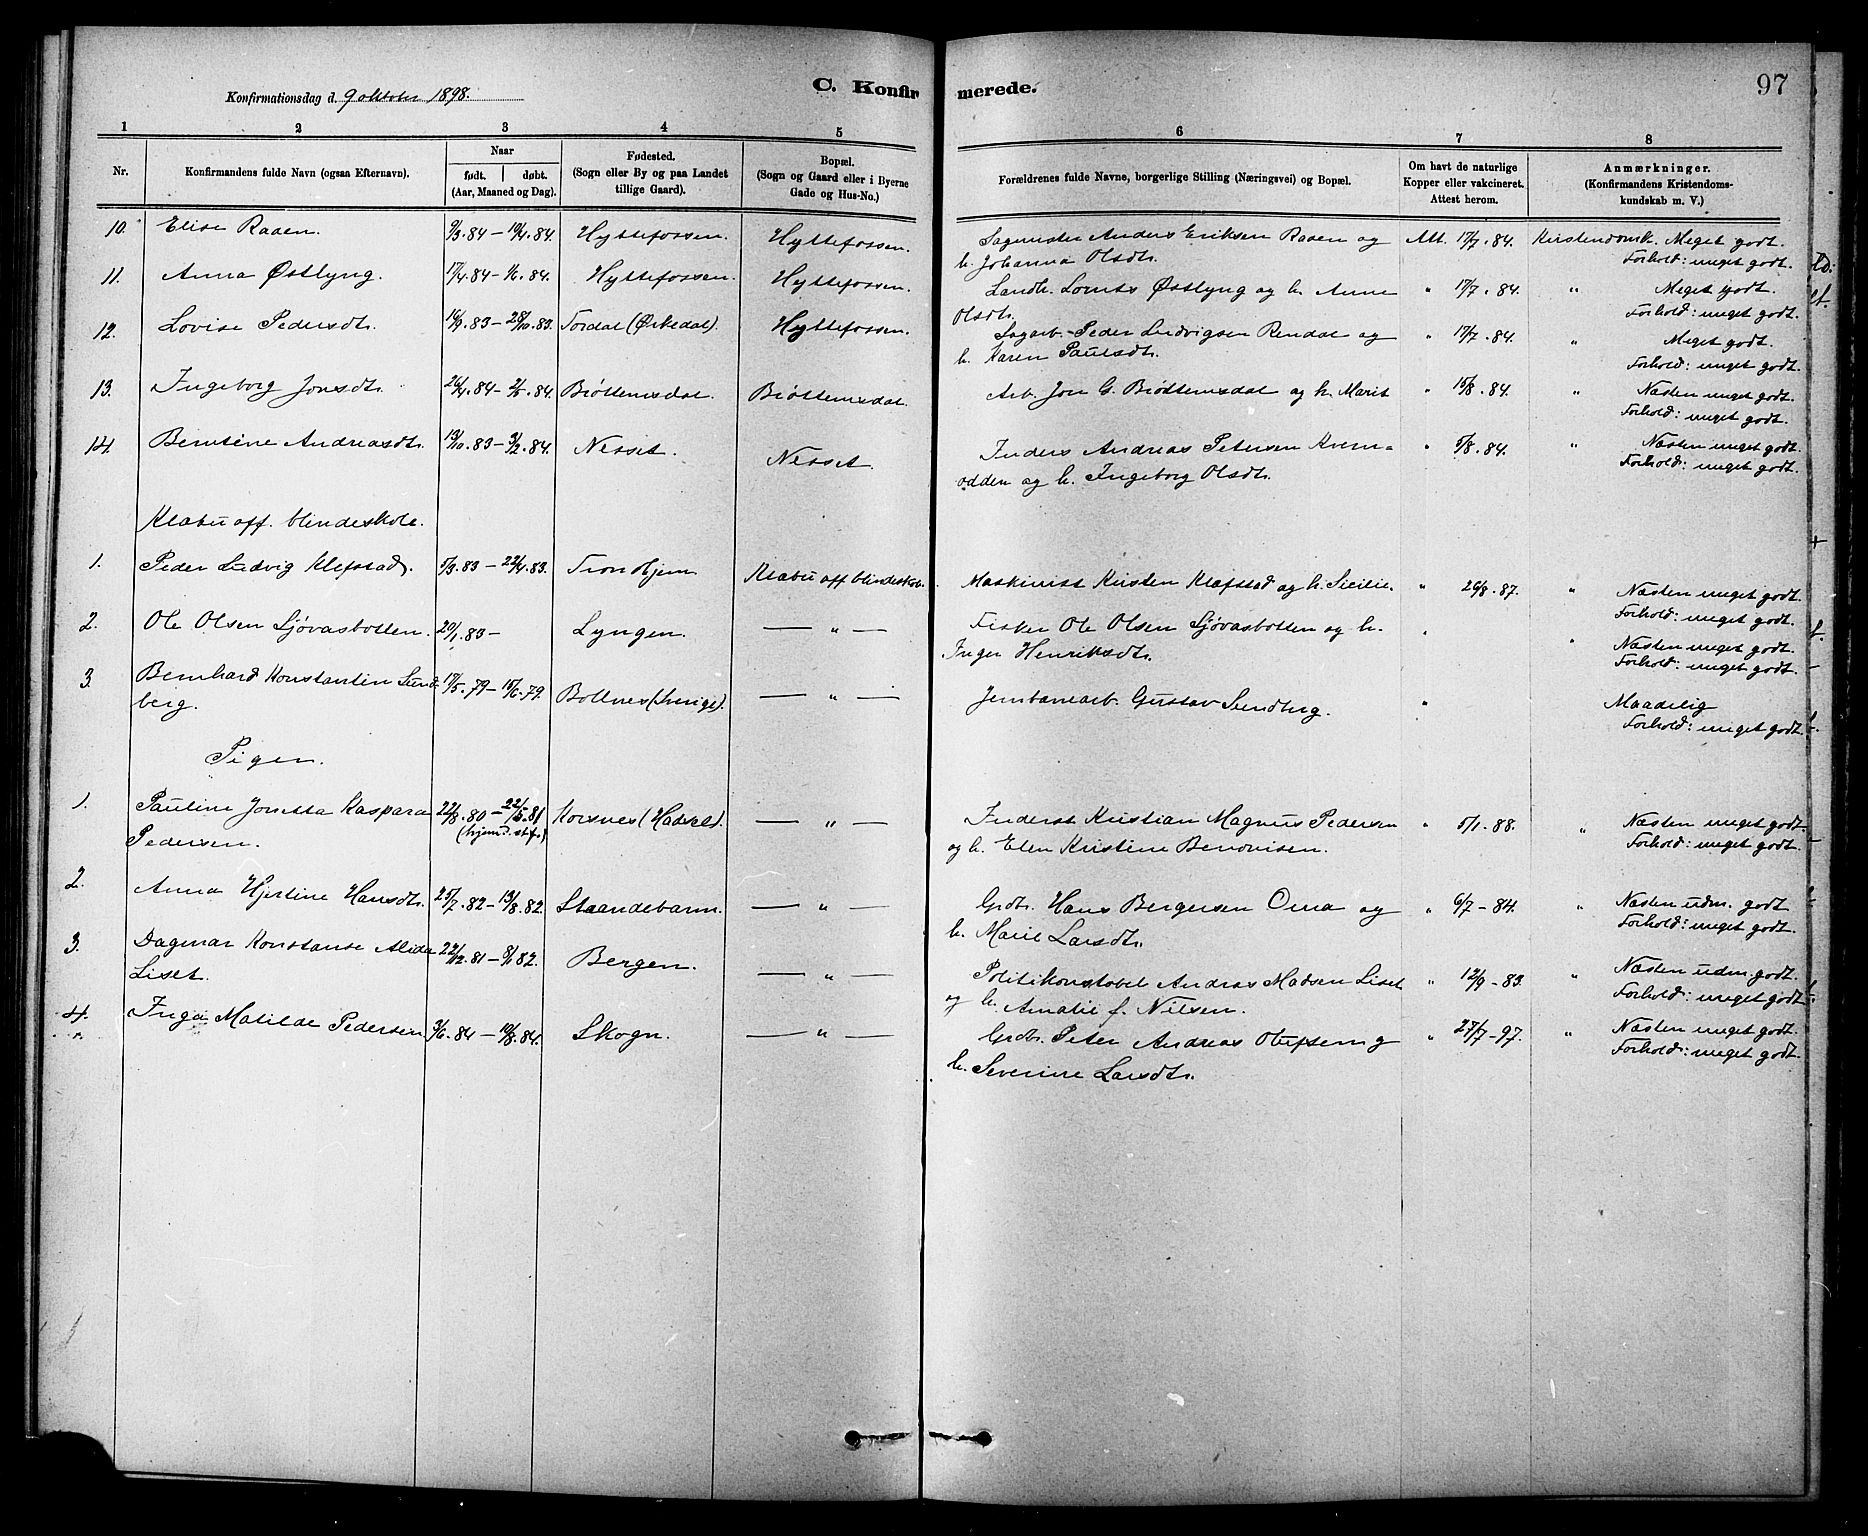 C. Konfirmerede.
97
Konfirmationsdag d. 9 oktober 1898.
1 2 3 4 5 6 7 8
Nr.
Konfirmandens fulde Navn (ogsaa Efternavn).
Naar
født. | døbt.
(Aar, Maaned og Dag).
Fødested.
(Sogn eller By og paa Landet
tillige Gaard).
Bopæl.
(Sogn og Gaard eller i Byerne
Gade og Hus-No.)
Forældrenes fulde Navne, borgerlige Stilling (Næringsvei) og Bopæl.
Om havt de naturlige
Kopper eller vakcineret.
Attest herom.
Anmærkninger.
(Konfirmandens Kristendoms-
kundskab m. V.)
10. Elise Raaen. 9/3.84 – 19/4.84. Hyttefossen. Hyttefossen. Sagmester Anders Eriksen Raaen og Att. 17/7.84. Kristendomsk. Meget godt.
h. Johanna Olsdt. Forhold: meget godt.
11. Anna Østlyng. 17/4.84 – 1/6.84. Hyttefossen. Hyttefossen. Landh. Lornts Østlyng og h. Anne " 17/7.84. " Meget godt.
Olsdt. Forhold: meget godt.
12. Lovise Pedersdt. 16/9.83 – 28/10.83. Jordal (Ørkedal). Hyttefossen. Sagarb. Peder Ludvigsen Rendal og " 17/7.84. " Meget godt.
h. Karen Paulsdt. Forhold: meget godt.
13. Ingeborg Jonsdt. 26/4.84 – 2/6.84. Brøttemsdal. Brøttemsdal. Arb. Jon G. Brøttemsdal og h. Marit " 15/8.84. " Næsten meget godt.
Forhold: meget godt.
14. Berntine Andreasdt. 13/10.83 – 3/2.84. Nesset. Nesset. Inders. Andreas Petersen Kvern- " 5/8.84. " Næsten meget godt.
odden og h. Ingeborg Olsdt. Forhold: meget godt.
Klæbu off. blindeskole.
1. Peder Ludvig Klefstad. 5/3.83 – 22/4.83. Trondhjem Klæbu off. blindeskole. Maskinist Kristen Klæfstad og h. Sicilie. " 26/8.87. " Næsten meget godt.
Forhold: meget godt.
2. Ole Olsen Sjøvasbotten. 20/1.83 – Lyngen. — " — Fisker Ole Olsen Sjøvasbotten og h. " " Næsten meget godt.
Inger Henriksdt. Forhold: meget godt.
3. Bernhard Konstantin Sund- 17/5.79 – 15/6.79. Bollnes (Sverige). — " — Jernbanearb. Gustav Sundberg. " Maadelig
berg. Forhold: meget godt.
Piger.
1. Pauline Jonetta Kaspara 22/8.80 – 22/5.81 Korsnes (Hadsel). — " — Inderst Kristian Magnus Pedersen " 5/1.88. " Næsten meget godt.
Pedersen. (hjemd. stf.) og h. Elen Kristine Benonisen. Forhold: meget godt.
2. Anna Hjertine Hansdt. 25/7.82 – 13/8.82. Straandebarm. — " — Grdbr. Hans Bergersen Oma og " 6/7 – 84. " Næsten udm. godt
h. Marie Larsdt. Forhold: meget godt.
3. Dagmar Konstanse Alida 22/12.81 – 8/1.82. Bergen. — " — Politikonstabel Andreas Madsen Liset " 12/9 – 83. " Næsten udm. godt.
Liset. og h. Amalie f. Nilsen. Forhold: meget godt
4. Inga Matilde Pedersen 9/6.84 – 10/8.84. Skogn. — " — Grdbr. Peter Andreas Olufsen og " 27/7 – 97. " Næsten meget godt.
h. Severine Larsdt. Forhold: meget godt.